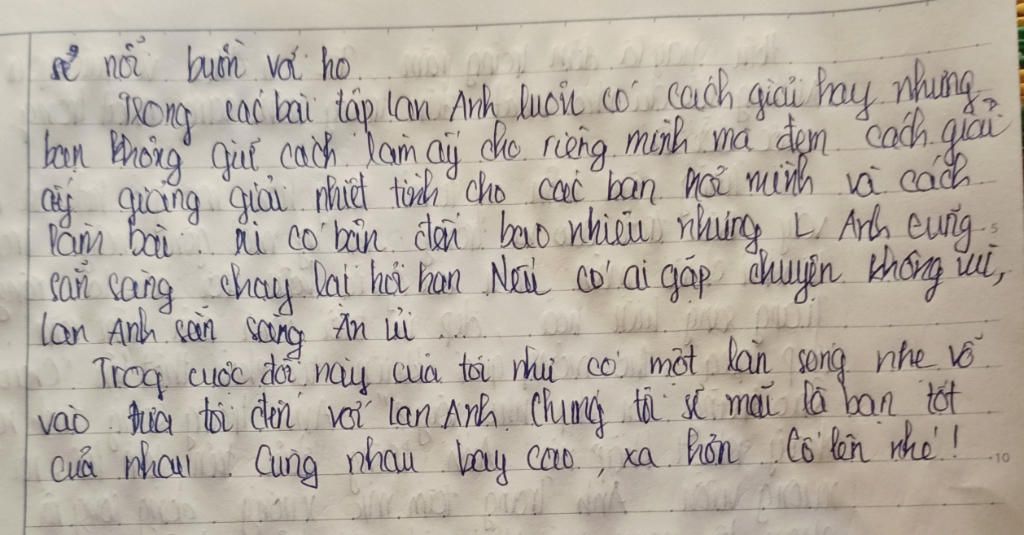 sẻ nỗi buồn với họ
Trong các bài tập Lan Anh luôn có cách giải hay nhưng
bạn không giữ cách làm ấy cho riêng mình mà đem cách giải
ấy giảng giải nhiệt tình cho các bạn nơi mình và cách
làm bài. Ai có bận đến bao nhiêu nhưng L Anh cũng
sẵn sàng chạy lại hỏi han Nếu có ai gặp chuyện không vui,
Lan Anh sẵn sàng An ủi
Trog cuộc đời này của tôi như có một làn sóng nhẹ vỗ
vào đưa tôi đến với Lan Anh. Chúng tô sẽ mãi là bạn tốt
của nhau. Cùng nhau bay cao, xa hơn Cố lên nhé!